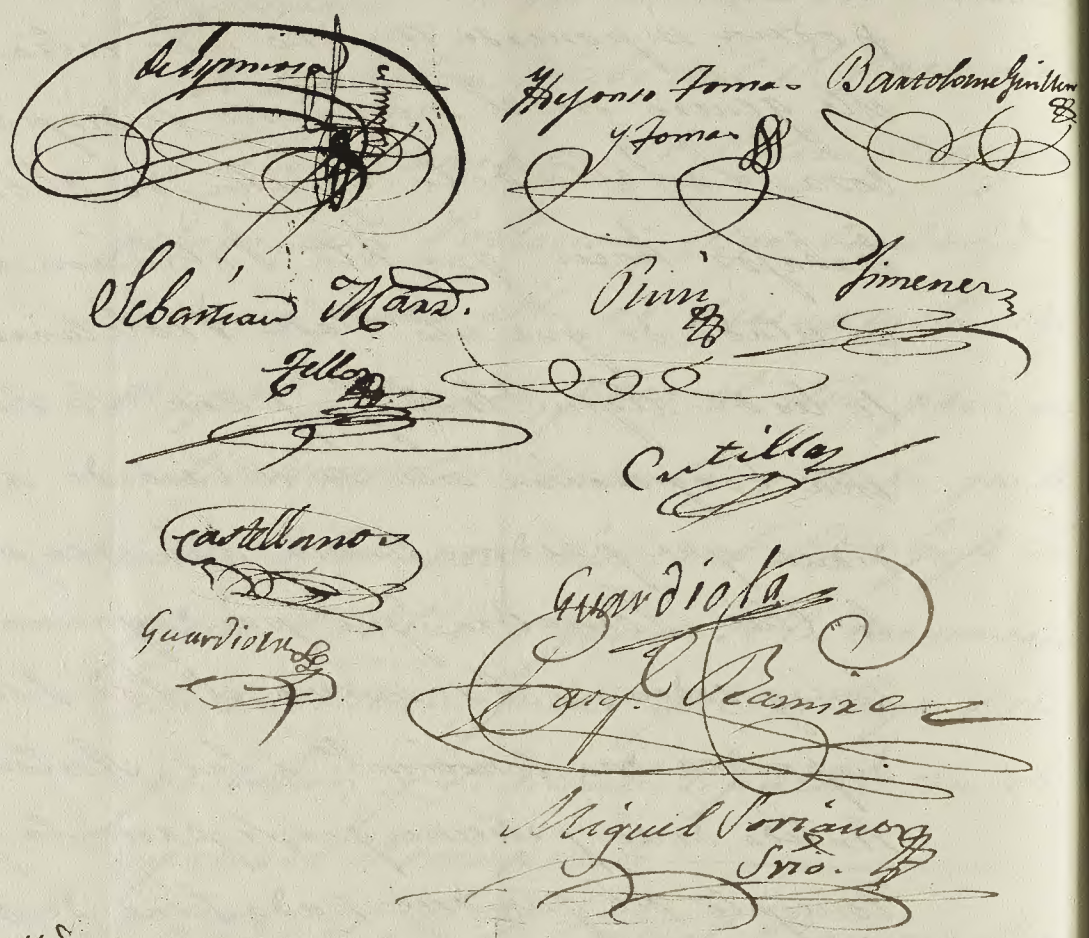 de Espinosa
Yldefonso Tomas
y Tomas
Bartolome Guillen
Sebastian Marz.
Tello
Jimenez
Cutillas
Castellanos
Guardiola
Guardiola
Ramirez
Miguel Soriano
Srio.